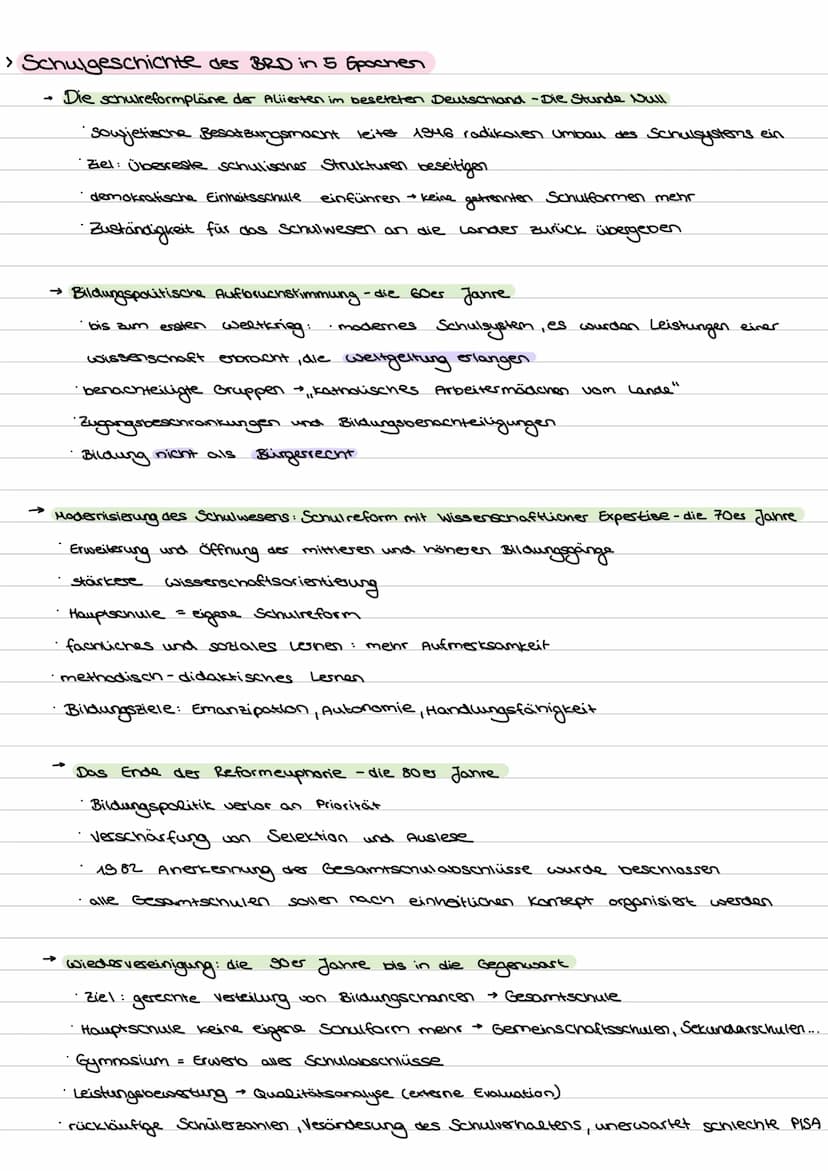 > Schulgeschichte der BRD in 5 Epochen
→ Die schulreformpläne der Alliierten im besetzten Deutschland - Die Stunde Null
· Sowjetische Besatzungsmacht leitet 1946 radikalen Umbau des Schulsystems ein
· Ziel: Überreste schulischer Strukturen beseitigen
· demokratische Einheitsschule einführen → keine getrennten Schulformen mehr
· Zuständigkeit für das Schulwesen an die Länder zurück übergeben
→ Bildungspolitische Aufbruchstimmung - die 60er Jahre
· bis zum ersten Weltkrieg: · modernes Schulsystem, es wurden Leistungen einer
wissenschaft erbracht, die Weltgeltung erlangen
· benachteiligte Gruppen → „katholisches Arbeitermädchen vom Lande"
· Zugangsbeschränkungen und Bildungsbenachteiligungen
· Bildung nicht als Bürgerrecht
→ Modernisierung des Schulwesens: Schulreform mit wissenschaftlicher Expertise - die 70er Jahre
· Erweiterung und Öffnung der mittleren und höheren Bildungsgänge
· stärkere wissenschaftsorientierung
· Hauptschule = eigene Schulreform
· fachliches und soziales Lernen : mehr Aufmerksamkeit
· methodisch - didaktisches Lernen
· Bildungsziele: Emanzipation, Autonomie, Handlungsfähigkeit
→ Das Ende der Reformeuphorie - die 80er Jahre
· Bildungspolitik verlor an Priorität
· Verschärfung von Selektion und Auslese
· 1982 Anerkennung der Gesamtschulabschlüsse wurde beschlossen
· alle Gesamtschulen sollen nach einheitlichen Konzept organisiert werden
→ Wiedervereinigung: die 90er Jahre bis in die Gegenwart
· Ziel : gerechte Verteilung von Bildungschancen → Gesamtschule
· Hauptschule keine eigene Schulform mehr → Gemeinschaftsschulen, Sekundarschulen...
· Gymnasium = Erwerb aller Schulabschlüsse
· Leistungsbewertung → Qualitätsanalyse (externe Evaluation)
· rückläufige Schülerzahlen, Veränderung des Schulverhaltens, unerwartet schlechte PISA